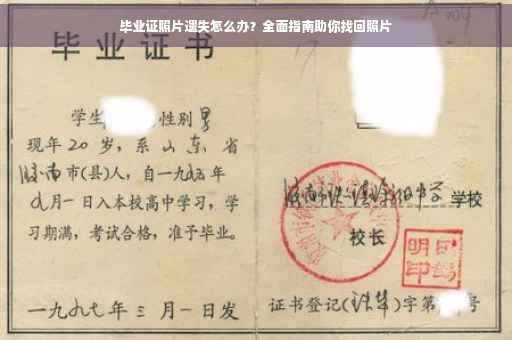 毕业证照片遗失怎么办？全面指南助你找回照片
毕业证书
学生 性别男
现年20岁，系山东省
济南市(县)人，自一九九五年
九月一日入本校高中学习，学
习期满，考试合格，准予毕业。
一九九七年三月一日发
学校
校长
明印
证书登记( )字第 号